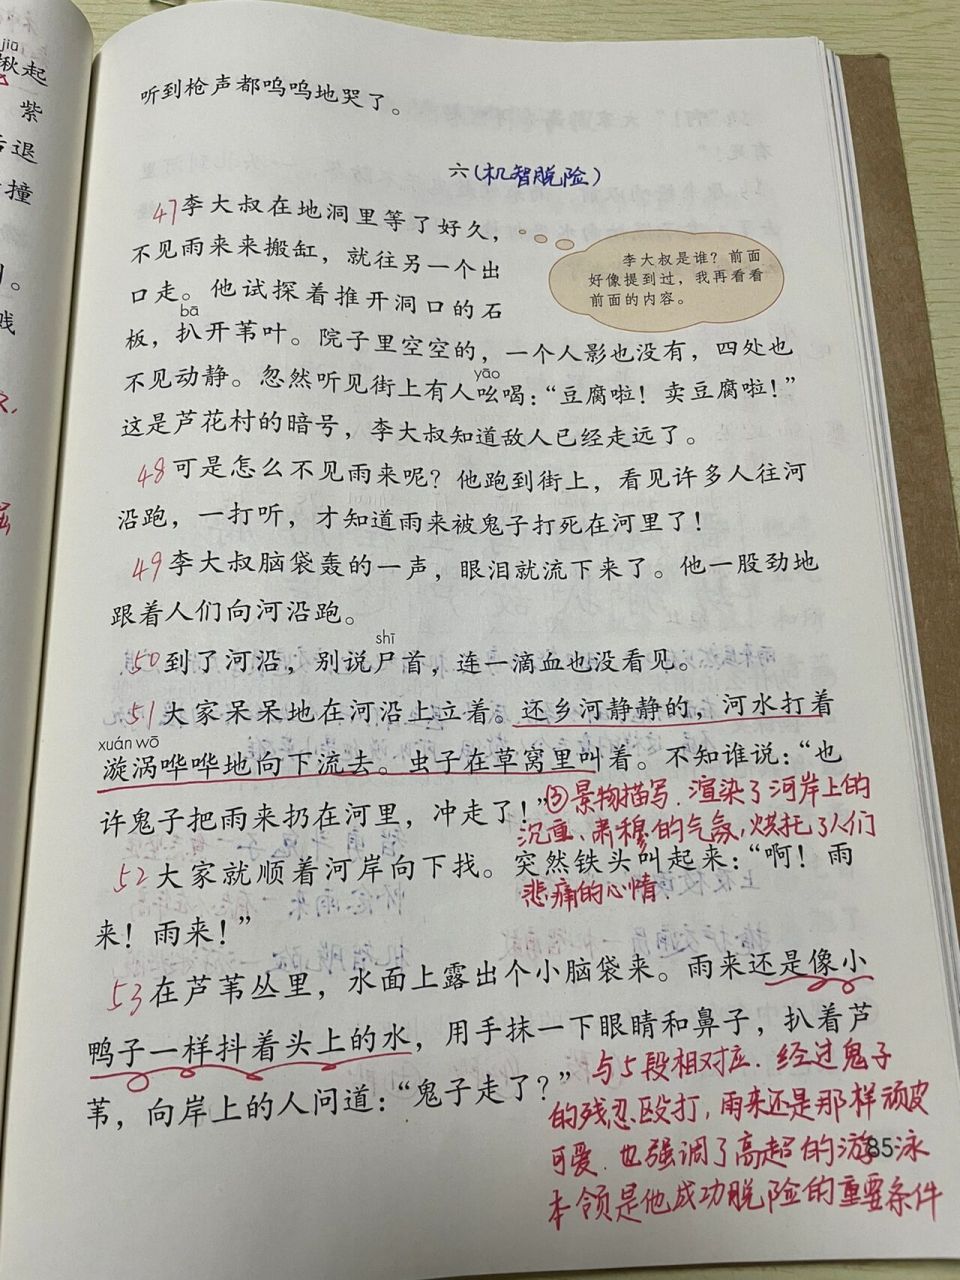 jiā
揪起
紫
后退
撞
听到枪声都呜呜地哭了。
六(机智脱险)
47李大叔在地洞里等了好久，
不见雨来来搬缸，就往另一个出
口走。他试探着推开洞口的石
bā
板，扒开苇叶。院子里空空的，一个人影也没有，四处也
不见动静。忽然听见街上有人吆喝：“豆腐啦！卖豆腐啦！”
yāo
这是芦花村的暗号，李大叔知道敌人已经走远了。
李大叔是谁？前面
好像提到过，我再看看
前面的内容。
48可是怎么不见雨来呢？他跑到街上，看见许多人往河
沿跑，一打听，才知道雨来被鬼子打死在河里了！
49李大叔脑袋轰的一声，眼泪就流下来了。他一股劲地
跟着人们向河沿跑。
shī
50到了河沿，别说尸首，连一滴血也没看见。
51大家呆呆地在河沿上立着。还乡河静静的，河水打着
xuán wō
漩涡哗哗地向下流去。虫子在草窝里叫着。不知谁说：“也
许鬼子把雨来扔在河里，冲走了！”
③景物描写.渲染了河岸上的
沉重、肃穆的气氛,烘托了人们
悲痛的心情.
52大家就顺着河岸向下找。突然铁头叫起来：“啊！雨
来！雨来！”
53在芦苇丛里，水面上露出个小脑袋来。雨来还是像小
鸭子一样抖着头上的水，用手抹一下眼睛和鼻子，扒着芦
苇，向岸上的人问道：“鬼子走了？”
与5段相对应.经过鬼子
的残忍殴打,雨来还是那样顽皮
可爱.也强调了高超的游泳
本领是他成功脱险的重要条件
85